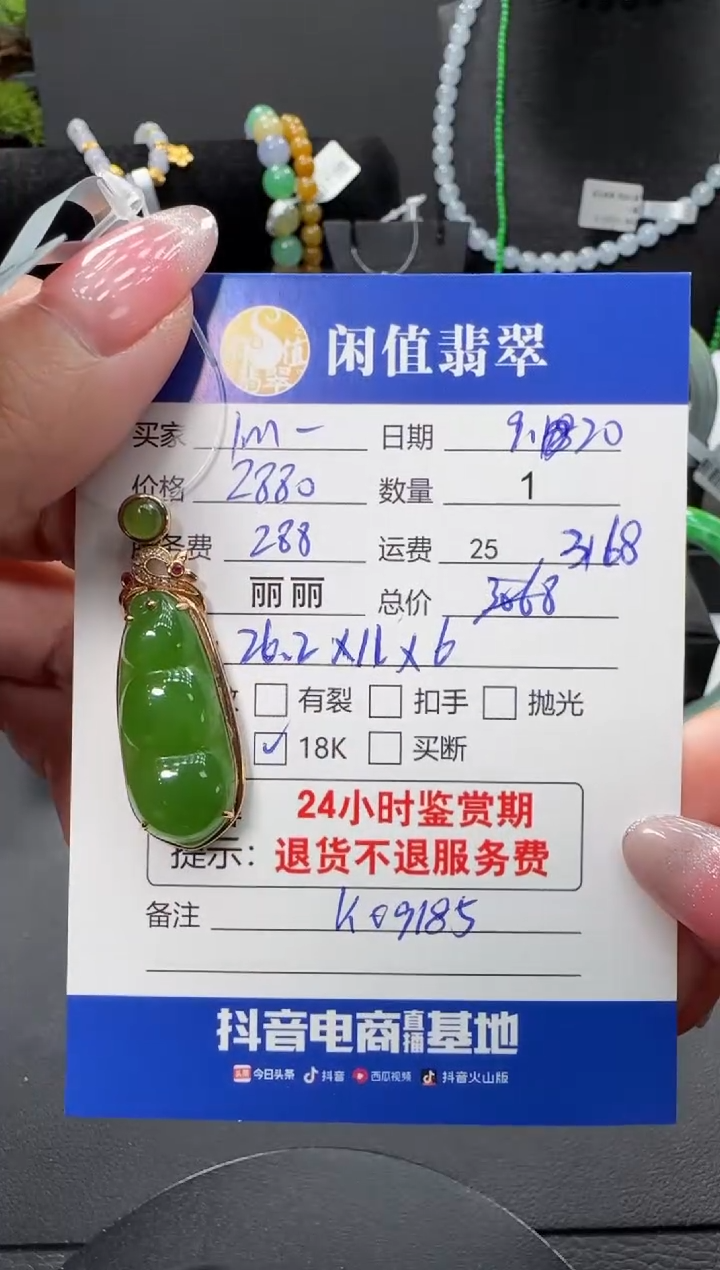 闲值翡翠
买家 日期 20
价格 2880 数量 1
务费 288 运费 25 3168
丽丽 总价
26.2×11×6
有裂 扣手 抛光
✓ 18K 买断
24小时鉴赏期
提示：退货不退服务费
备注 K09185
抖音电商直播基地
今日头条 抖音 西瓜视频 抖音火山版